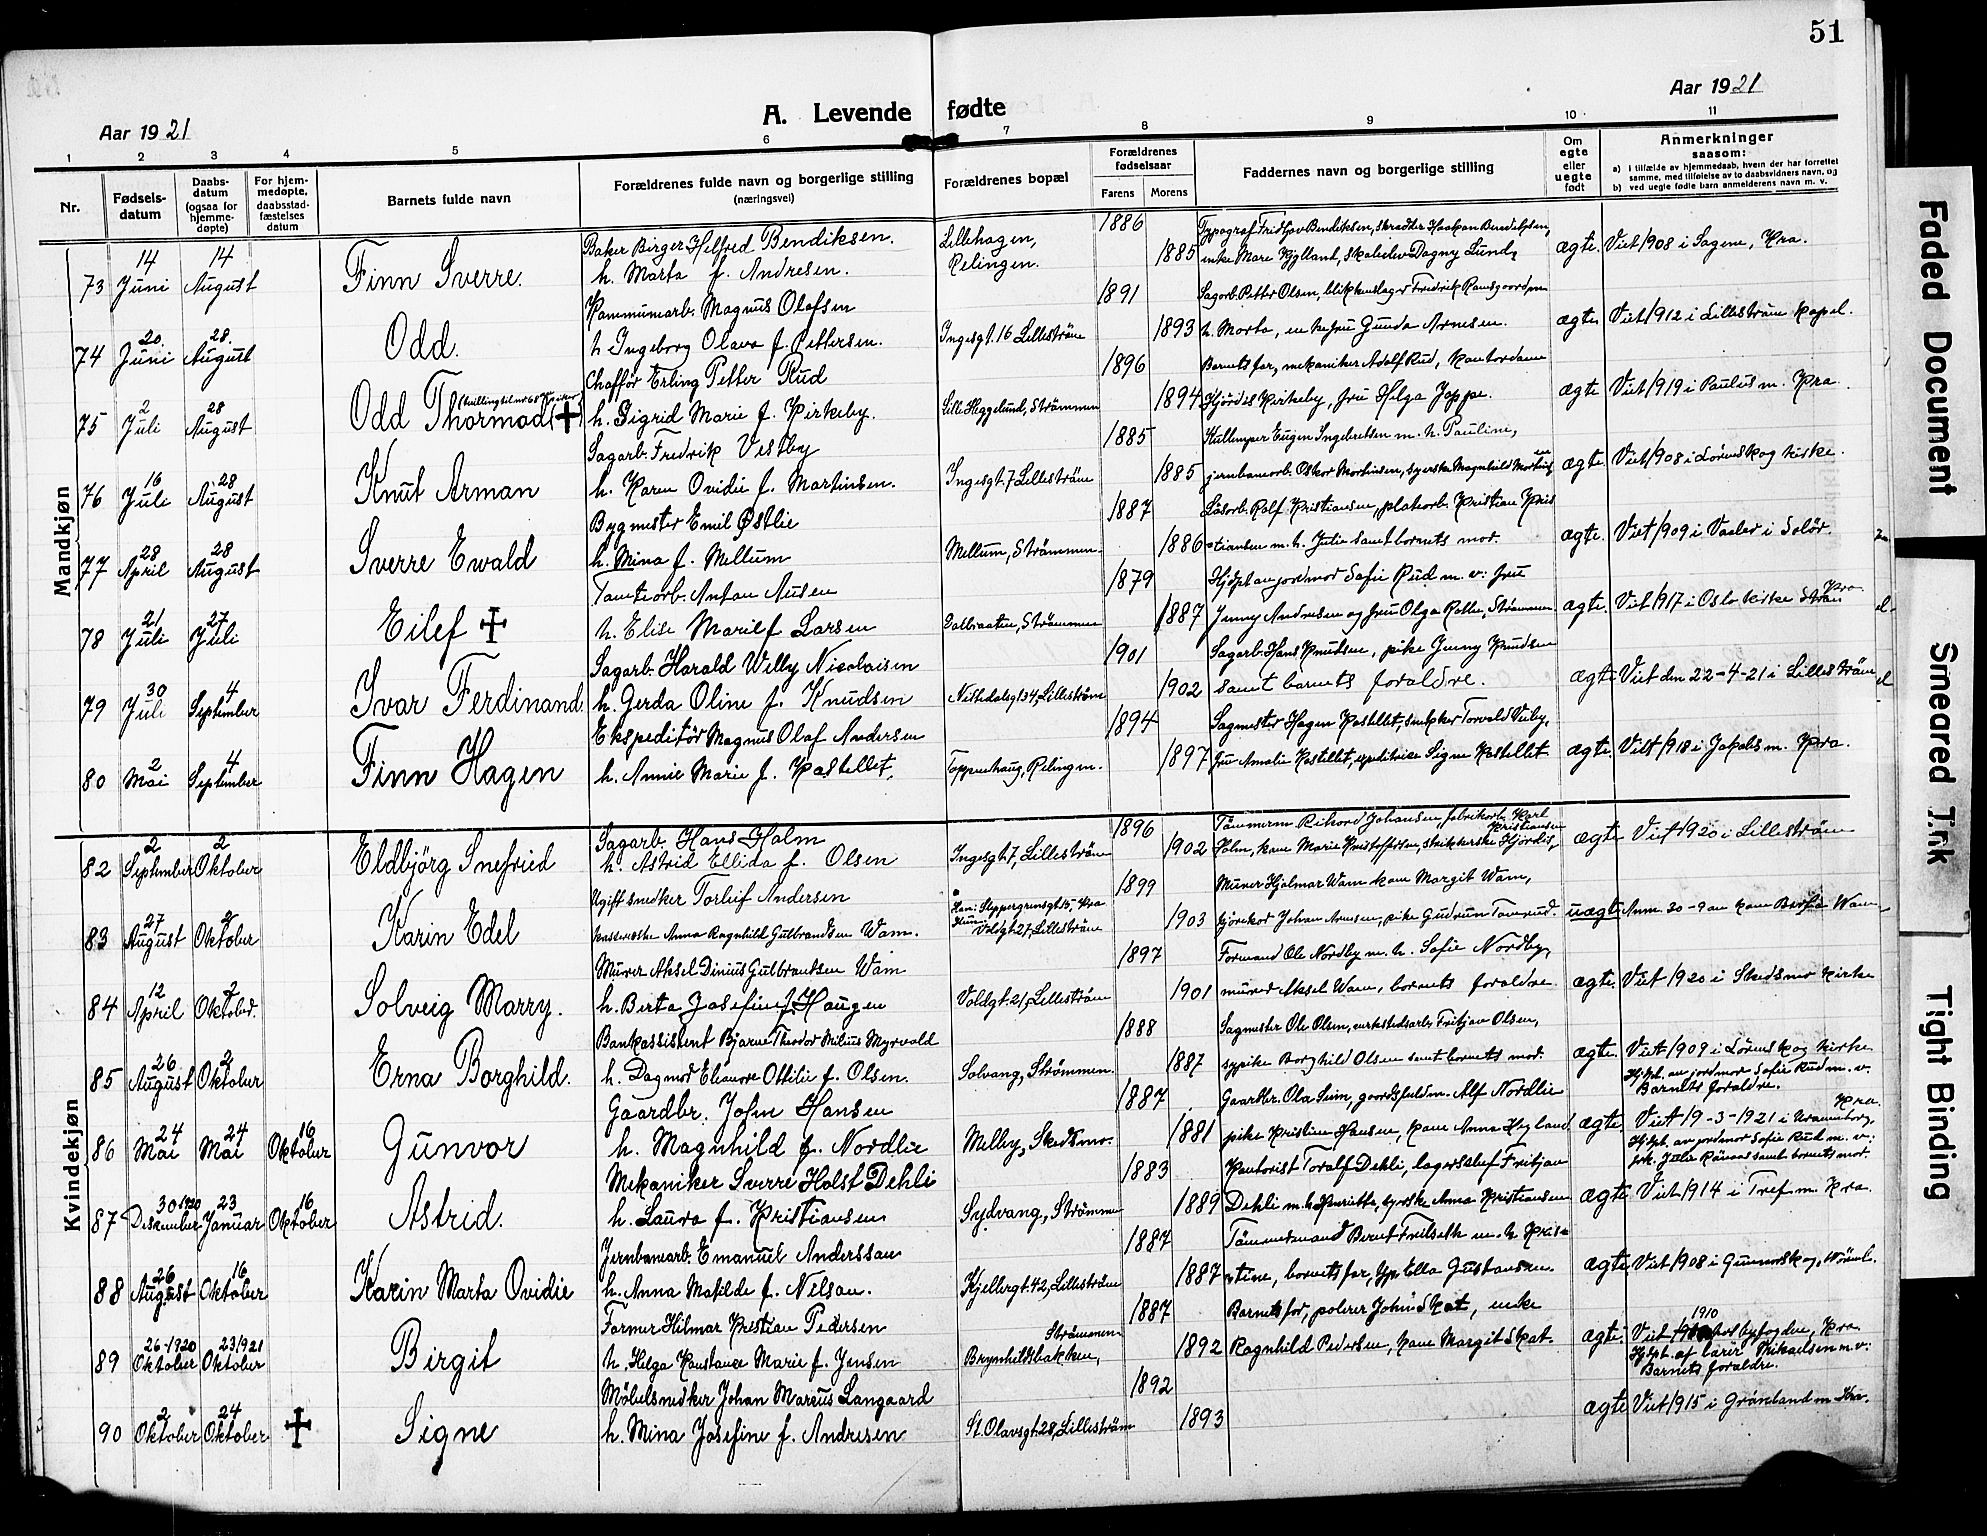 51
Aar 1921
A. Levende fødte
Aar 1921
1 2 3 4 5 6 7 8 9 10 11
Nr.
Fødsels-datum
Daabs-datum (ogsaa for hjemme-døpte)
For hjem-medøpte, daabsstad-fæstelses datum
Barnets fulde navn
Forældrenes fulde navn og borgerlige stilling (næringsvei)
Forældrenes bopæl
Forældrenes fødselsaar
Farens Morens
Faddernes navn og borgerlige stilling
Om egte eller uegte født
Anmerkninger saasom:
a) i tilfælde av hjemmedaab, hvem der har forrettet samme, med tilføielse av to daabsvidners navn, og
b) ved uegte fødte barn anmelderens navn m. v.
Mandkjøn
73 14 Juni 14 August Finn Sverre.
Baker Birger Helfred Bendiksen.
h. Marta f. Andresen.
Lillehagen, Relingen.
1886 1885
Typograf Fridtjov Bendiksen, skrædder Haakon Bendiksen,
enke Mare Kylland, skoleelev Dagny Lund,
ægte. Viet 1908 i Sagene, Kra.
74 20. Juni 28. August Odd.
Kommunearb. Magnus Olafsen
h. Ingeborg Olava f. Pettersen.
Ingesgt. 16 Lilleström
1891 1893
Sagarb. Petter Olsen, blikkenslager Fredrik Ramsgaarden
h. Marta, fru Gunda Arnesen.
ægte Viet 1912 i Lilleström kapel.
75 2 Juli 28 August Odd Thormod (+)
Chafför Erling Petter Rud
h. Sigrid Marie f. Kirkeby.
Lille Heggelund, Strömmen
1896 1894
Barnets far, mekaniker Adolf Rud, kontordame
Hjördis Kirkeby, fru Helga Joppe.
ægte Viet 1919 i Paulus m. Kra.
76 16 Juli 28 August Knut Arman
Sagarb. Fredrik Vestby
h. Karen Ovidie f. Martinsen.
Ingesgt. 7 Lilleström
1885 1885
Eugen Ingebretsen m. h. Pauline,
jernbanearb. Oskar Martinsen, syerske Magnhild
ægte Viet 1908 i Lörenskog kirke.
77 28 April 28 August Sverre Ewald
Bygmester Emil Østlie
h. Mina f. Mellum
Mellum, Strömmen.
1887 1886
Rolf Kristiansen, platearb. Kristian Kris
tiansen m. h. Julie samt barnets mor.
ægte. Viet 1909 i Vaaler i Solör.
78 21 Juli 27 Juli Eilef +
Tomtearb. Anton Ausen
h. Elise Marie f Larsen
Dalbraaten, Strömmen
1879 1887
Hjdpt av jordmor Sofie Rud m. v: fru
Jenny Andresen og fru Olga Strömmen
ægte. Viet 1917 i Oslo kirke Kra.
79 30 Juli 4 September Ivar Ferdinand
Sagarb. Harald Welly Nicolaisen
h. Gerda Oline f. Knudsen
Nittedalsgt 34, Lilleström
1901 1902
Sagarb. Hans Knudsen, pike Jenny Knudsen
samt barnets foraldre.
ægte Viet den 22-4-21 i Lilleström
80 2 Mai 4 September Finn Hagen
Ekspeditör Magnus Olaf Andersen
h. Annie Marie f. Kastellet,
Toppenhaug, Relingen.
1894 1897
Sagmester Hagen Kastellet, snekker Torvald Veiby,
fru Amalie Kastellet, Signe Kastellet
ægte. Viet 1918 i Jakobs m. Kra.
Kvindekjøn
82 2 September 2 Oktober Eldbjörg Snefried
Sagarb. Hans Holm
h. Astrid Ellida f. Olsen
Ingesgt 7, Lilleström
1896 1902
Tömmerm. Rikard Johansen, fabrikarb. Karl Kristiansen
Holm, kone Marie Kristoffersen, strikkerske Hjördis,
ægte Viet 1920 i Lilleström
83 27 August 2 Oktober Karin Edel
Ugift snedker Torleif Andersen
kassererske Anna Ragnhild Gulbrandsen Wam.
Han: Steppergrensgt 15, Kra
Hun: Voldgt 27, Lilleström
1899 1903
Murer Hjalmar Wam kone Margit Wam,
Johan Arnesen, pike Gudrun
uægte Anm. 30-9 av kone Berta Wam
84 12 April 2 Oktober. Solveig Marry.
Murer Aksel Dinius Gulbrandsen Wam
h. Berta Josefine f. Haugen
Voldgt 21, Lilleström
1897 1901
Formand Ole Nordby m. h. Sofie Nordby,
murer Aksel Wam, barnets foraldre.
ægte. Viet 1920 i Skedsmo kirke
85 26 August 2 Oktober Erna Borghild.
Bankassistent Bjarne Theodor Milius Myrvold
h. Dagmar Eleonore Ottilie f. Olsen.
Solvang, Strömmen.
1888 1887
Sagmester Ole Olsen, verkstedsarb. Fritjav Olsen,
sypike Borghild Olsen samt barnets mor.
ægte. Viet 1909 i Lörenskog kirke
86 24 Mai 24 Mai 16 Oktober Gunvor
Gaardbr. John Hansen
h. Magnhild f. Nordlie
Melby, Skedsmo.
1887 1881
Gaardbr. Ola Seim, Alf Nordlie
pike Kristine Hansen, kone Anna Hegland
ægte
Hjdpt. av jordmor Sofie Rud m. v.
Barnets foraldre.
Viet 19-3-1921 i Uranienborg, Kra.
87 30 1920 Desember 23 Januar 16 Oktober Astrid.
Mekaniker Sverre Holst Dehli
h. Laura f. Kristiansen
Sydvang, Strömmen
1883 1889
Kontorist Toralf Dehli, lagerchef Fritjav
Dehli m. h. Henriette, syerske Anna Kristiansen
ægte
Hjdpt. av jordmor Sofie Rud m. v:
frk. Julie samt barnets mor.
Viet 1914 i Tref. m. Kra.
88 26 August 16 Oktober Karin Marta Ovidie
Jernbanearb. Emanuel Anderssan
h. Anna Matilde f. Nelson.
Kjellergt 42, Lilleström
1887 1887
Tömmermand Bernt Trelseth m. h. Kris
tine, barnets far, Ella Gustavsen.
ægte Viet 1908 i Gunnarskog, Wärml.
89 26-1920 Oktober 23 1921 Oktober Birgit
Former Hilmar Kristian Pedersen
h. Helga Konstance Marie f. Jensen
Brynhildsbakken, Strömmen
1887 1892
Barnets far, polerer John Skat, enke
Ragnhild Pedersen, kone Margit Skat.
ægte. Viet 1910 byfogden, Kra
90 2 Oktober 24 Oktober + Signe
Möbelsnedker Johan Marcus Langaard
h. Mina Josefine f. Andresen
St. Olavsgt. 28, Lilleström
1892 1893
ægte
Hjdpt. af lærer Mikaelsen m. v:
Barnets foraldre.
Viet 1915 i Grönland m. Kra.
Faded Document
Smeared Ink
Tight Binding